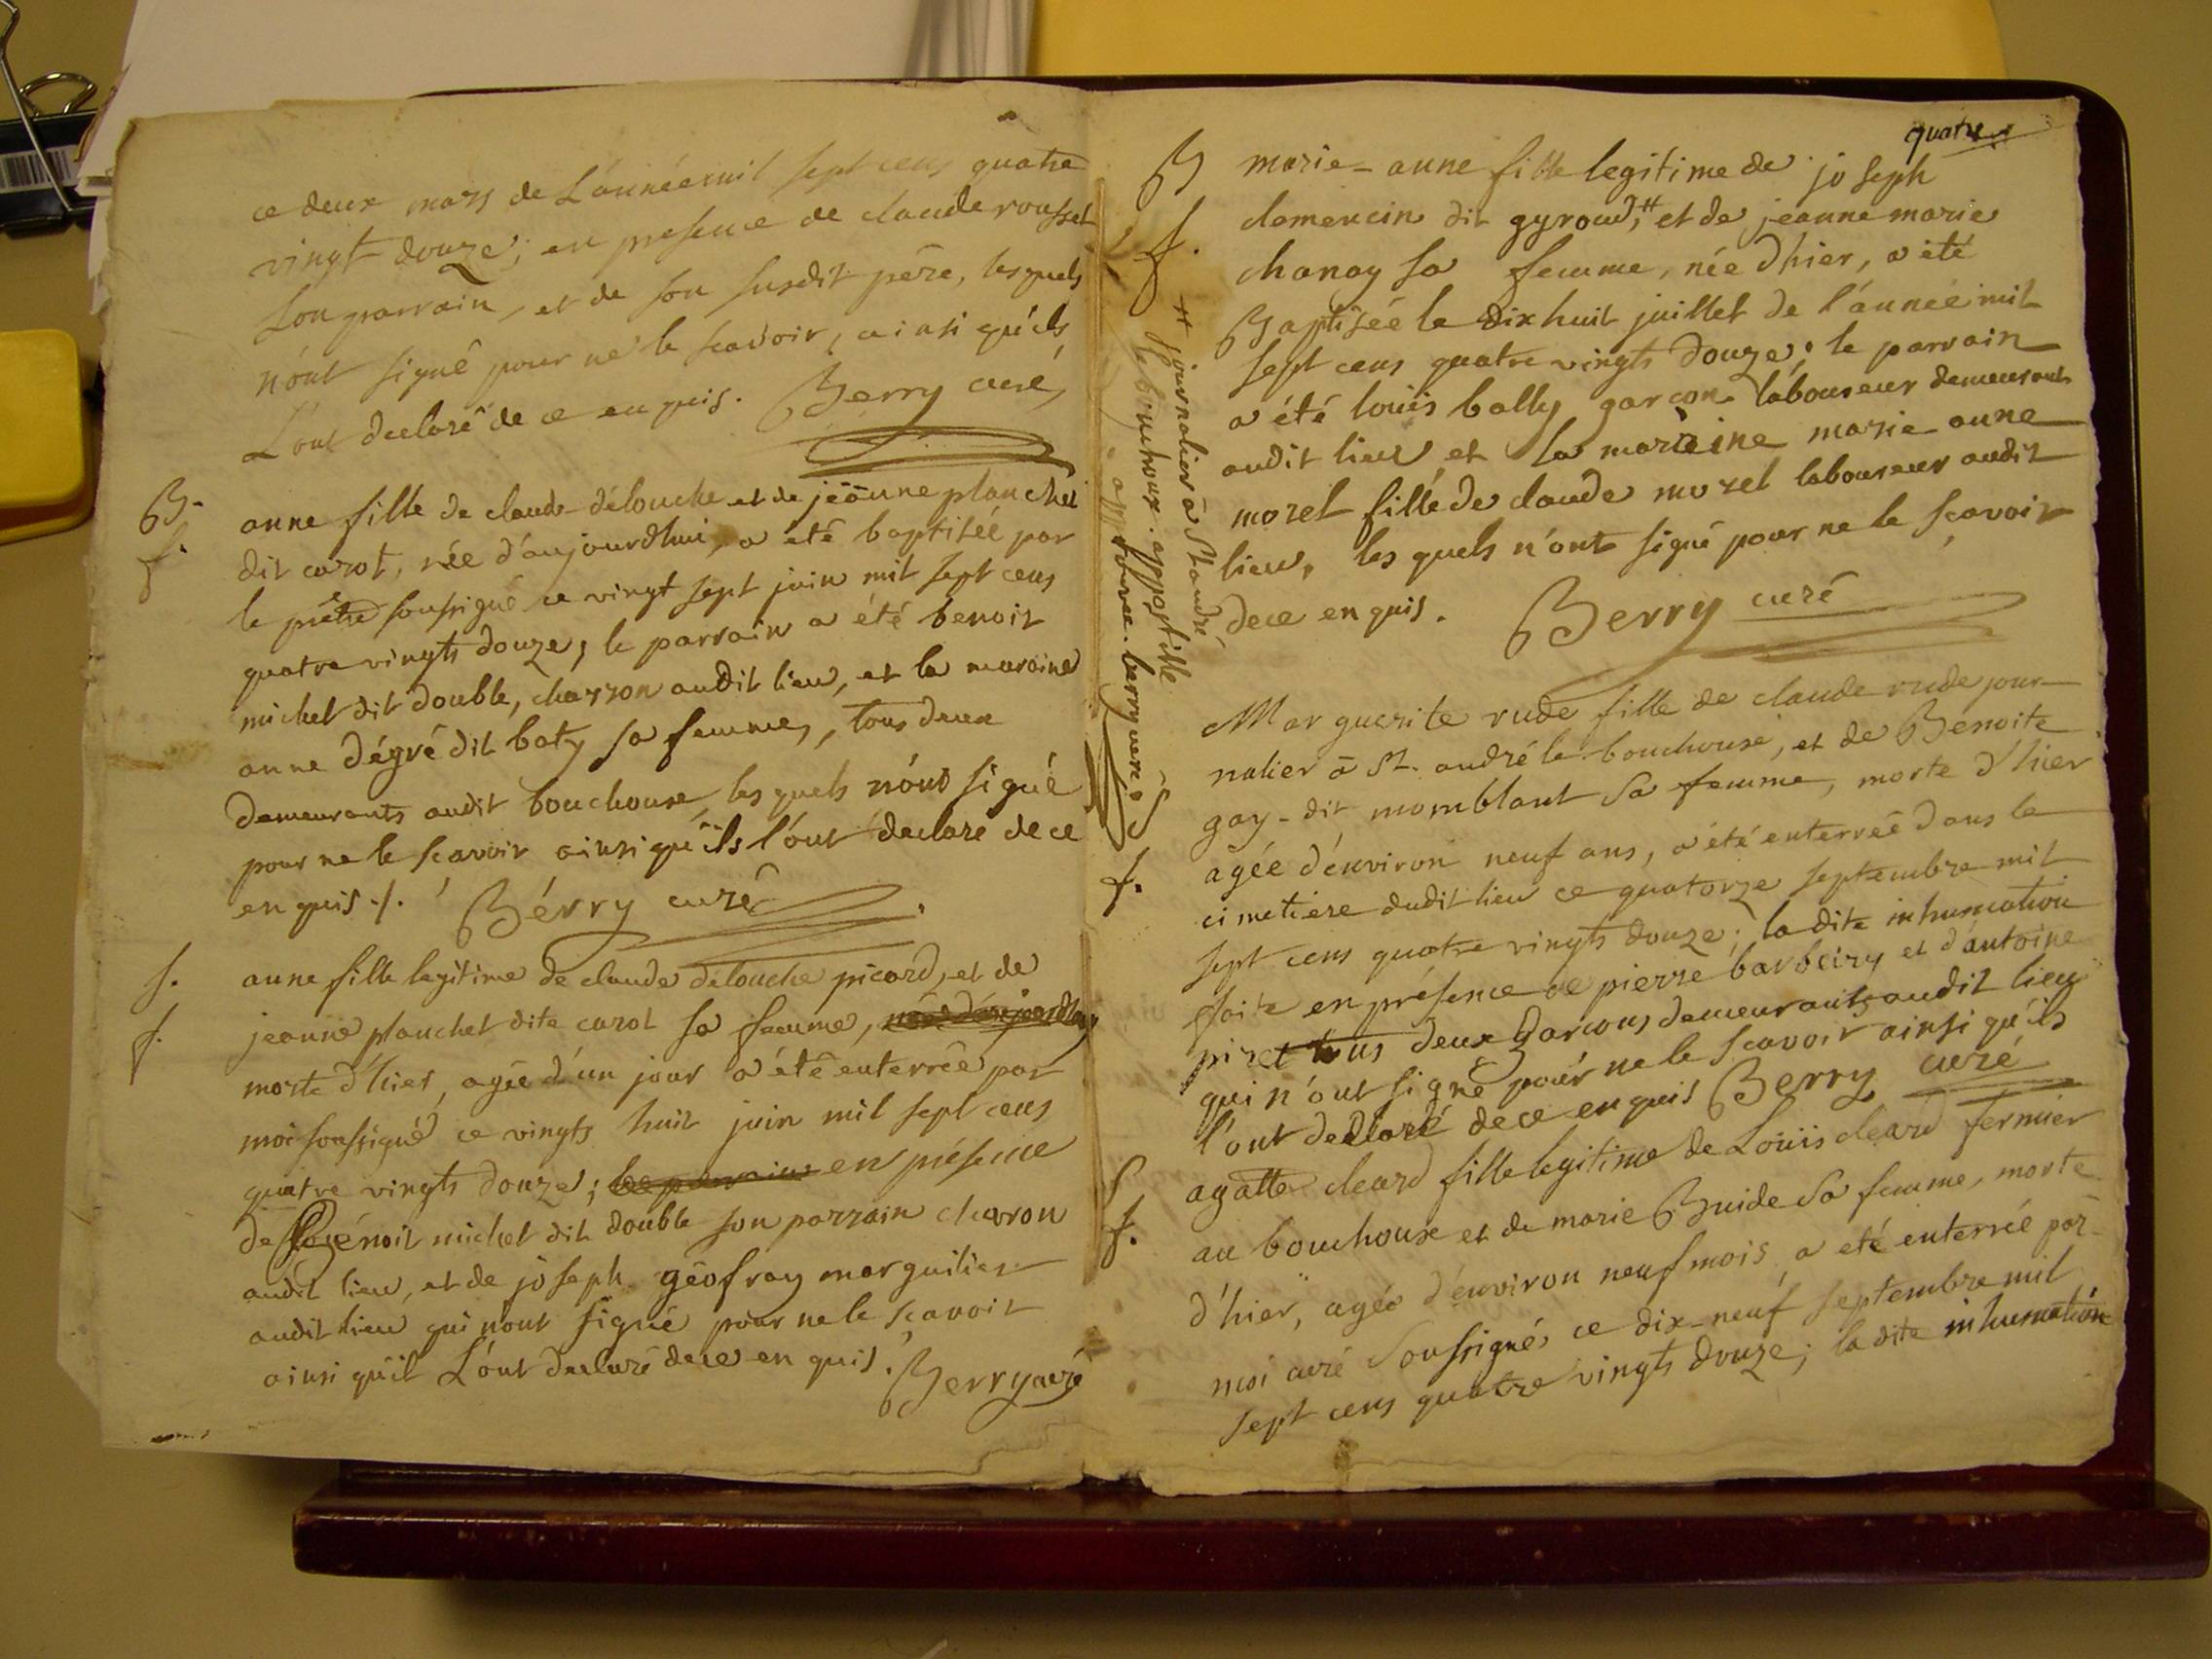 ce deux mars de L'année mil sept cens quatre
vingt douze; en presence de claude rousset
son parrain, et de son susdit père, lesquels
n'ont signé pour ne le scavoir, ainsi qu'ils
L'ont declaré de ce enquis. Berry curé
B.
f.
anne fille de claude délouche et de jéanne planchet
dit carot, née d'aujourdhui, a été baptisée par
le prêtre soussigné ce vingt sept juin mil sept cens
quatre vingts douze; le parrain a été benoit
michel dit double, charron audit lieu, et la maraine
anne dégré dit baty sa femme, tous deux
demeurants audit bouchoux, les quels n'ont signé
pour ne le scavoir ainsi qu'ils l'ont declaré de ce
enquis ./. Bérry curé
S.
f.
anne fille legitime de claude délouche picard, et de
jeanne planchet dite carot sa femme, née d'aujourdhuy
morte d'hier, agée d'un jour a été enterrée par
moi soussigné ce vingts huit juin mil sept cens
quatre vingts douze; le parrain en présence
de bénoit michel dit double son parrain charon
audit lieu, et de joseph géofray marguilier
audit lieu qui n'ont signé pour ne le scavoir
ainsi qu'il L'ont declaré de ce enquis. Berry curé
quatre
B
f.
marie-anne fille legitime de joseph
clemencin dit gyroud, # et de jeanne marie
chanay sa femme, née d'hier, a été
Baptisée le dix huit juillet de l'année mil
sept cens quatre vingts douze; le parrain
a été louis bally garcon laboureur demeurant
audit lieu et la maraine marie anne
morel fille de claude morel laboureur audit
lieu, les quels n'ont signé pour ne le scavoir
de ce enquis. Berry curé
# journalier à St andré
le bouchoux. appostille
approuvee. berry curé
Marguerite rude fille de claude rude jour-
nalier à St. andré le bouchoux, et de Benoite
gay-dit momblant sa femme, morte d'hier
f.
agée d'environ neuf ans, a été enterrée dans le
cimetiere dudit lieu ce quatorze septembre mil
sept cens quatre vingts douze; la dite inhumation
faite en présence de pierre barbeiry et d'antoine
piret tous deux garcons demeurants audit lieu
qui n'ont signé pour ne le scavoir ainsi qu'ils
l'ont declaré de ce enquis Berry curé
S
f.
agatte cleard fille legitime de Louis cleard fermier
au bouchoux et de marie Buide sa femme, morte
d'hier, agée d'environ neuf mois a eté enterrée par
moi curé soussigné, ce dix-neuf septembre mil
sept cens quatre vingts douze; la dite inhumation